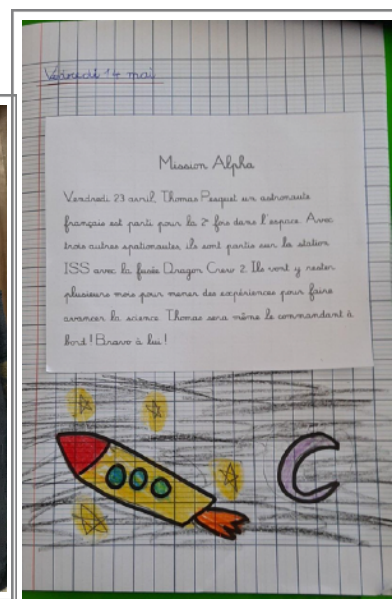 Vendredi 14 mai
Mission Alpha
Vendredi 23 avril, Thomas Pesquet un astronaute
français est parti pour la 2e fois dans l'espace. Avec
trois autres spationautes, ils sont partis sur la station
ISS avec la fusée Dragon Crew 2. Ils vont y rester
plusieurs mois pour mener des expériences pour faire
avancer la science. Thomas sera même le commandant à
bord ! Bravo à lui !